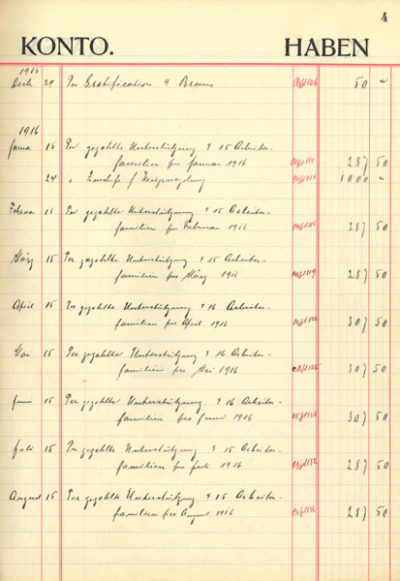 4
KONTO. HABEN
1915
Dech 24 Per Gratification a Bruns 50 –
1916
Janua 15 Per gezahlte Unterstützung a 15 Arbeiter-
familien per Januar 1916 287 50
24 " f 1000 –
Februa 15 Per gezahlte Unterstützung a 15 Arbeiter-
familien per Februar 1916 287 50
März 15 Per gezahlte Unterstützung a 15 Arbeiter-
familien per März 1916 287 50
April 15 Per gezahlte Unterstützung a 16 Arbeiter-
familien per April 1916 307 50
Mai 15 Per gezahlte Unterstützung a 16 Arbeiter-
familien per Mai 1916 307 50
Juni 15 Per gezahlte Unterstützung a 16 Arbeiter-
familien pro Juni 1916 307 50
Juli 15 Per gezahlte Unterstützung a 15 Arbeiter-
familien per Juli 1916 287 50
August 15 Per gezahlte Unterstützung a 15 Arbeiter-
familien per August 1916 287 50